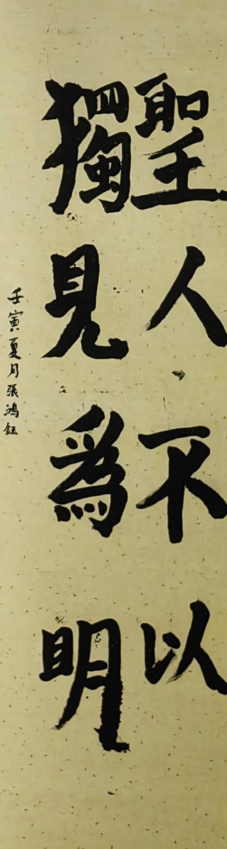 聖人不以
獨見為明
壬寅夏月張鴻鈺